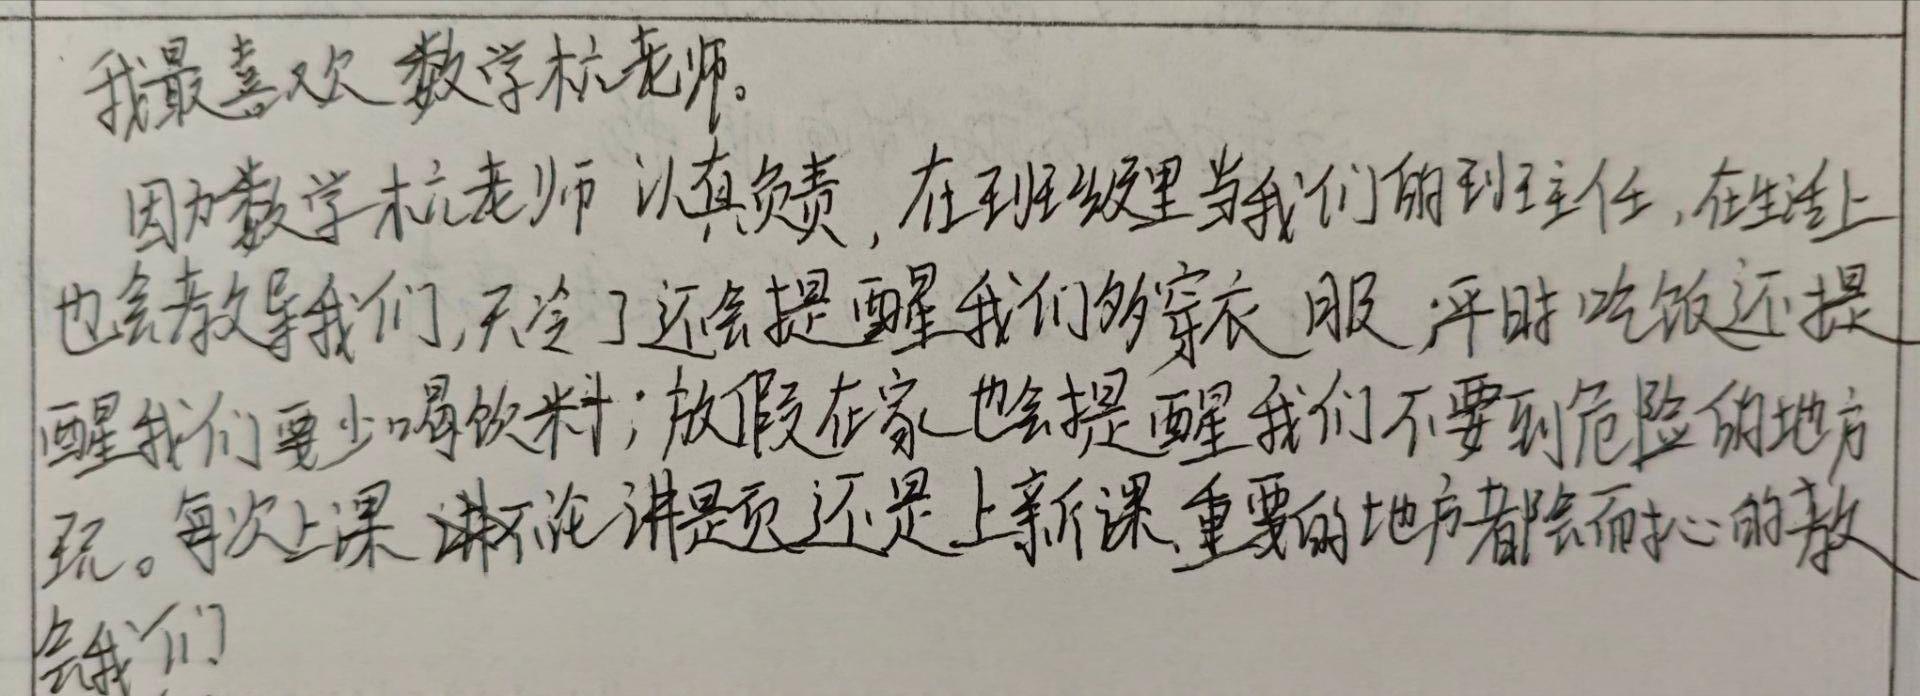 我最喜欢数学杭老师。
因为数学杭老师认真负责，在班级里当我们的班主任，在生活上
也会教导我们，天冷了还会提醒我们多穿衣服，平时吃饭还提
醒我们要少喝饮料；放假在家也会提醒我们不要到危险的地方
玩。每次上课不论讲题还是上新课，重要的地方都会耐心的教
会我们